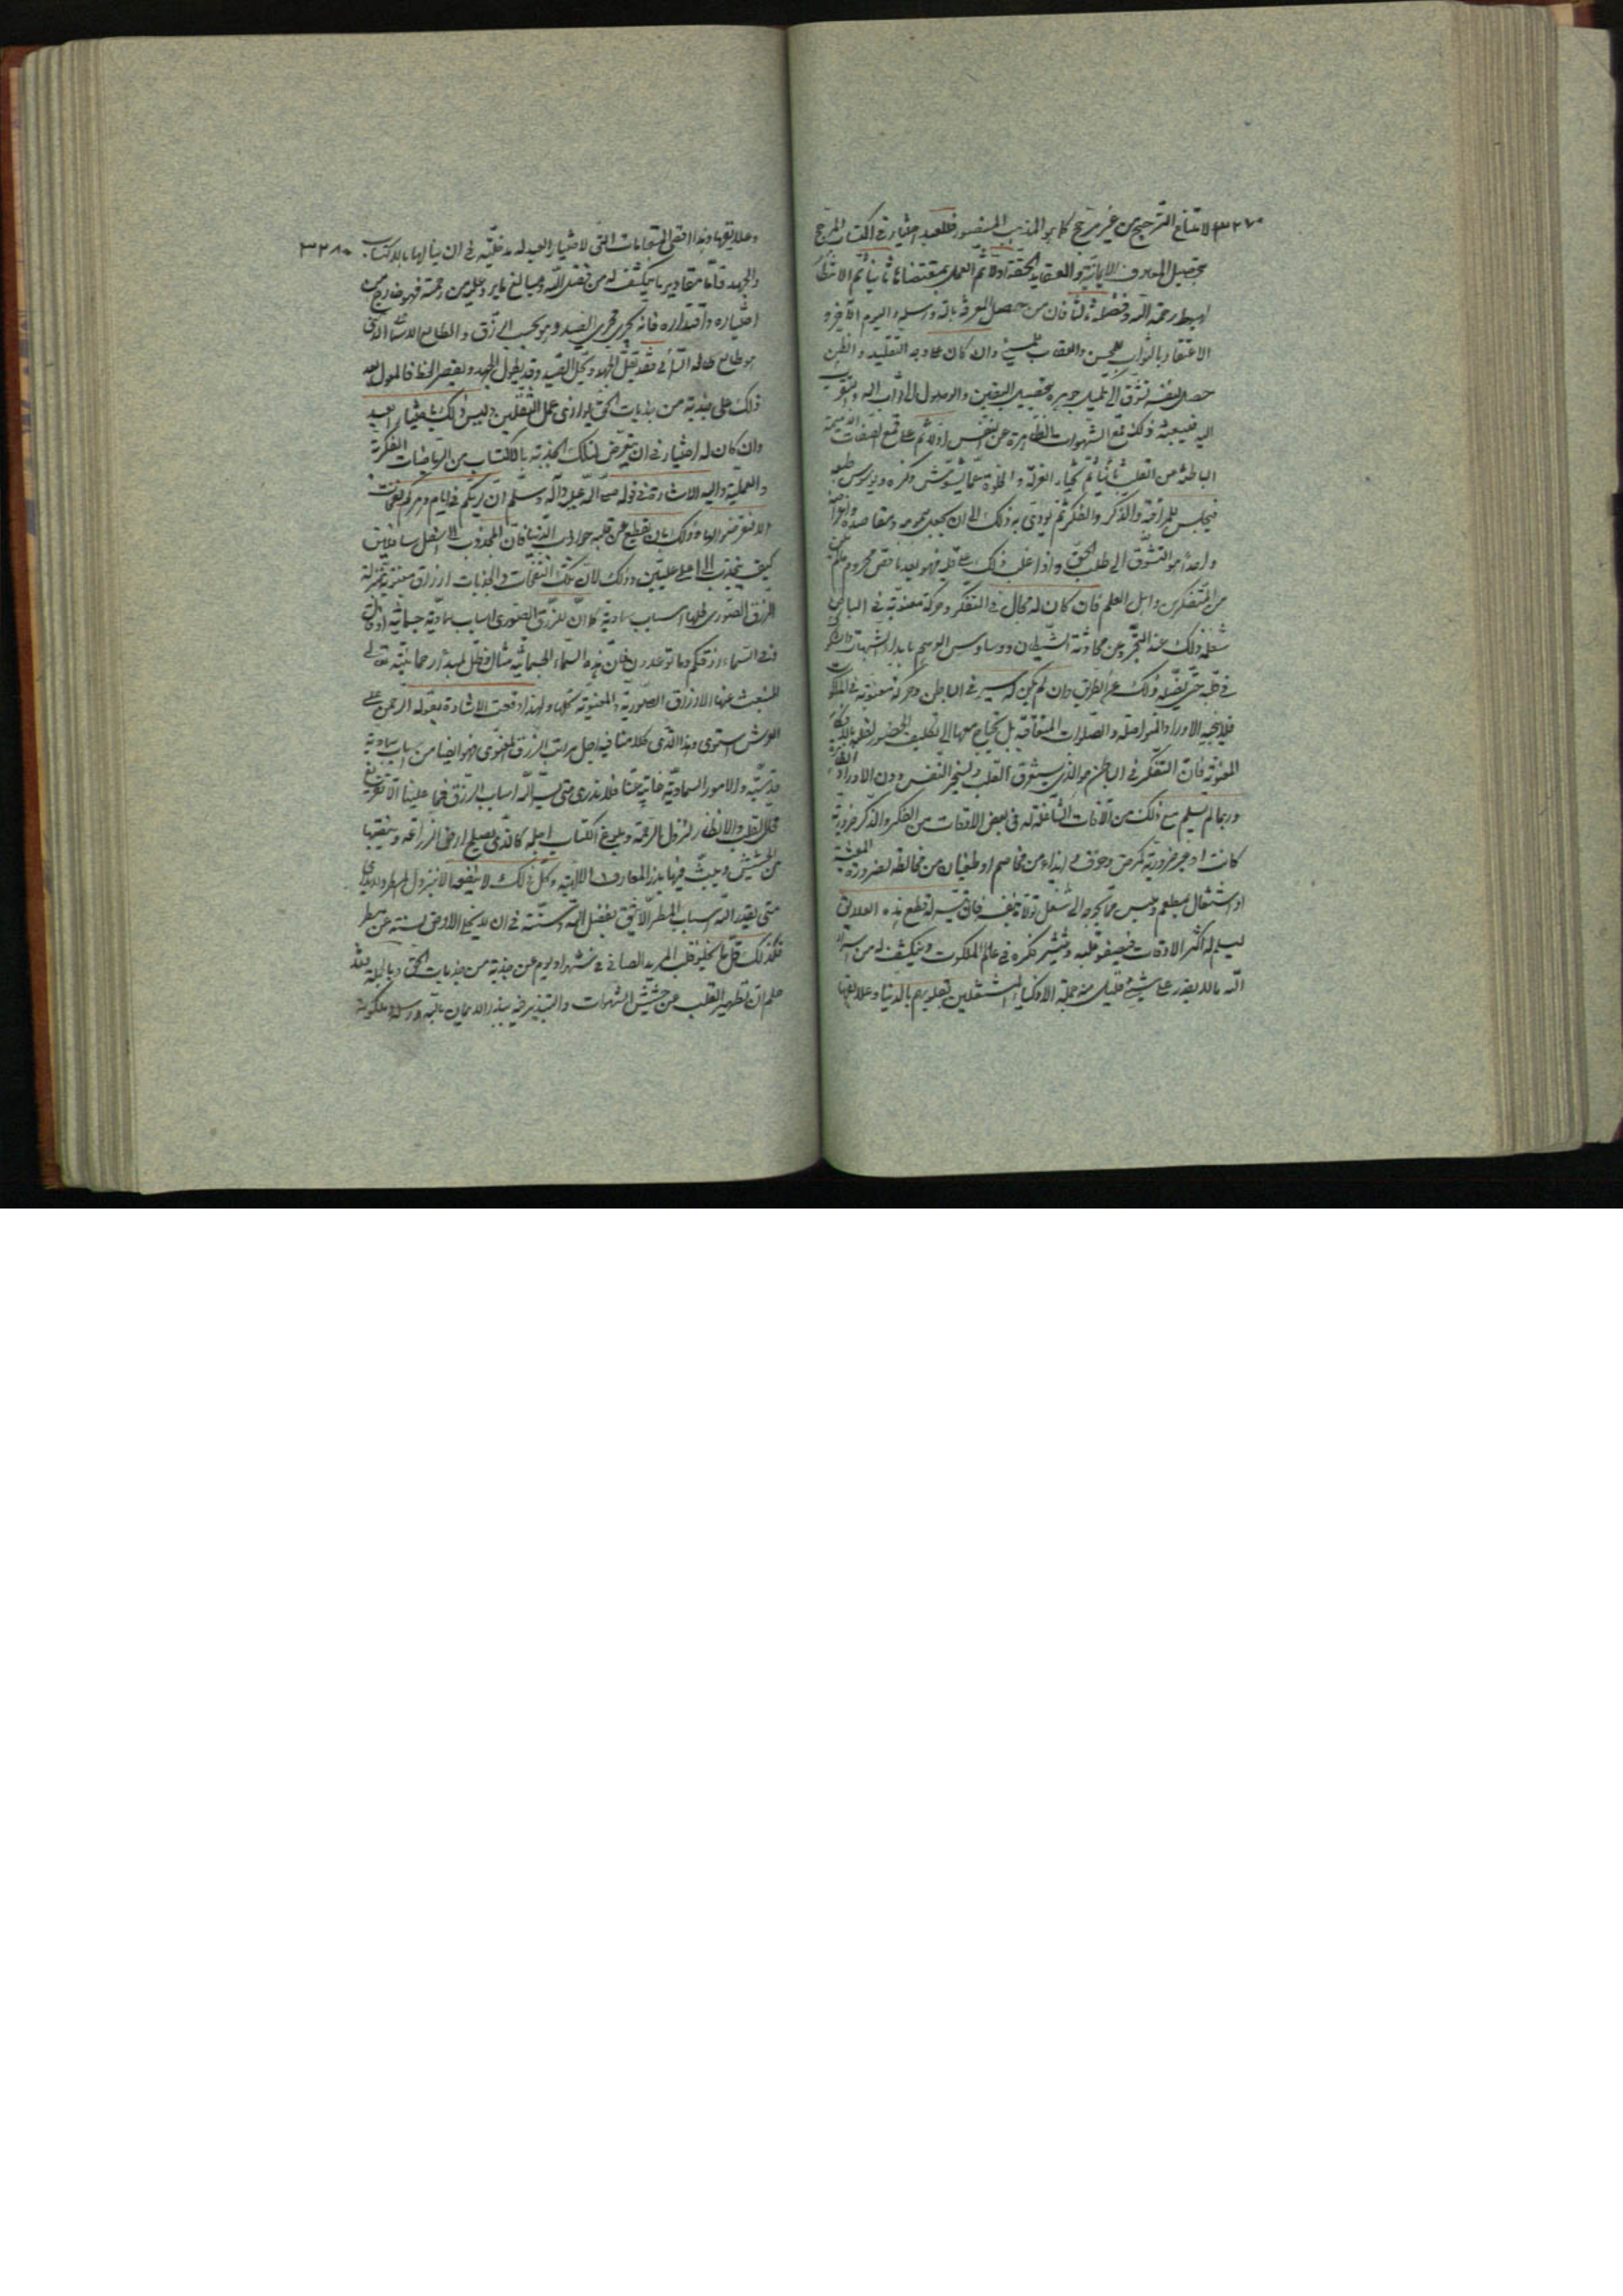 ٣٢٧ لامتناع الترجيح من غير مرجح كما هو المذهب المنصور فللعبد اختيار في اكتساب المرجح
بتحصيل المعارف الايمانية والعقايد الحقة اولا ثم العمل بمقتضاها ثانيا ثم الانتظار
لهبوط رحمة الله وفضله ثالثا فان من حصل المعرفة بالله ورسله واليوم الآخر و
الاعتقاد بالثواب للمحسن والعقاب للمسيء وان كان على وجه التقليد والظن
حصل لنفسه تشوق الى تكميل جوهره بتحصيل اليقين والوصول الى ثواب الله والتقرب
اليه فيبعثه ذلك لقمع الشهوات الظاهرة عن النفس اولا ثم على قمع الصفات الذميمة
الباطنة من القلب ثانيا ثم يختار العزلة والخلوة عما يشوش فكره ويوسوس طبعه
فيجلس للمراقبة والذكر والفكر ثم يؤدى به ذلك الى ان يجعل همومه ومقاصده واغراضه
واحدا هو التشوق الى طلب الحق واذا غلب ذلك على قلبه فهو بعد ناقص محروم ما لم يكن
من المتفكرين واهل العلم فان كان له مجال في التفكر وحركة معنوية في الباطن
شغله ذلك عند التجرد من محادثة الشيطان ووساوس الوهم بابداء الشبهات والشكوك
في قلبه حتى يضله ذلك عن الطريق وان لم يكن له سير في الباطن وحركة معنوية في الملكوت
فلا ينجيه الاوراد المتواصلة والصلوات المتعاقبة بل يحتاج معها الى تكليف الحضور لقلبه بالافكار
المعنوية فان التفكر في الباطن هو الذي يستغرق القلب ويسخر النفس دون الاوراد الظاهرة
وربما لم يسلم مع ذلك من الآفات الشاغلة له في بعض الاوقات من الفكر والذكر ضرورية
كانت او غير ضرورية كمرض وخوف وايذاء من مخاصم او طغيان من مخالطه لضرورة المعيشة
او اشتغال بمطعم وملبس مما يحوجه الى شغل تولاه بنفسه فان تيسر له قطع هذه العلايق
ليسلم له اكثر الاوقات فيصفو قلبه وتيسر فكره في عالم الملكوت وينكشف له من اسرار
الله ما لا يقدر على شيء قليل منه جملة الاذكياء المشتغلين قلوبهم بالدنيا وعلايقها
٣٢٨ وعلايقها وهذا اقصى المقامات التى لاختيار العبد له مدخلية في ان ينالها بالاكتساب
والجهد واما مقادير ما ينكشف له من فضل الله ومبالغ ما يرد عليه من رحمته فهو خارج عن
اختياره واقتداره فانه يجري مجرى الصيد وهو بحسب الرزق
فقد يقل الجهد ويجل الصيد وقد يطول الجهد ويقصر الحظ فالمعول بعد
ذلك على جذبة من جذبات الحق يوازى عمل الثقلين وليس ذلك باختيار العبد
وان كان له اختيار في ان يتعرض لتلك الجذبة بالاكتساب من الرياضات الفكرية
والعملية واليه الاشارة في قوله صلى الله عليه وآله وسلم ان لربكم في ايام دهركم نفحات
الا فتعرضوا لها وذلك بان يقطع عن قلبه جواذب الدنيا فان المجذوب الى اسفل سافلين
كيف ينجذب الى اعلى عليين وذلك لان تلك النفحات والجذبات ارزاق معنوية بمنزلة
الرزق الصورى ولها اسباب سماوية كما ان للرزق الصورى اسباب سماوية جسمانية اذ قال
وفي السماء رزقكم وما توعدون فان هذه السماء الجسمانية مثال وظل لسماء رحمانيته تعالى
المنبعث عنها الارزاق الصورية والمعنوية كلها ولهذا وقعت الاشارة بقوله الرحمن على
العرش استوى وهذا الذي كلامنا فيه اجل مراتب الرزق المعنوى فهو ايضا من اسباب سماوية
قدسية والامور السماوية غايبة عنا فلا ندرى متى ييسر الله اسباب الرزق فما علينا الا تفريغ
محل القلب والانتظار لنزول الرحمة وبلوغ الكتاب اجله كالذى يصلح ارض الزراعة وينقيها
من الحشيش ويبث فيها بذر المعارف الالهية وكل ذلك لا ينفعه الا بنزول المطر ولا يدرى
متى يقدر الله اسباب المطر الا انه يثق بفضل الله وسنته في ان لا يخلى الارض سنة عن مطر
فكذلك قل ما يخلو قلب المريد الصافى في شهر او يوم عن جذبة من جذبات الحق وبالجملة فقد
علم ان تطهير القلب عن حشيش الشهوات والتبذير فيه ببذر الايمان بالله ورسله وملكوته